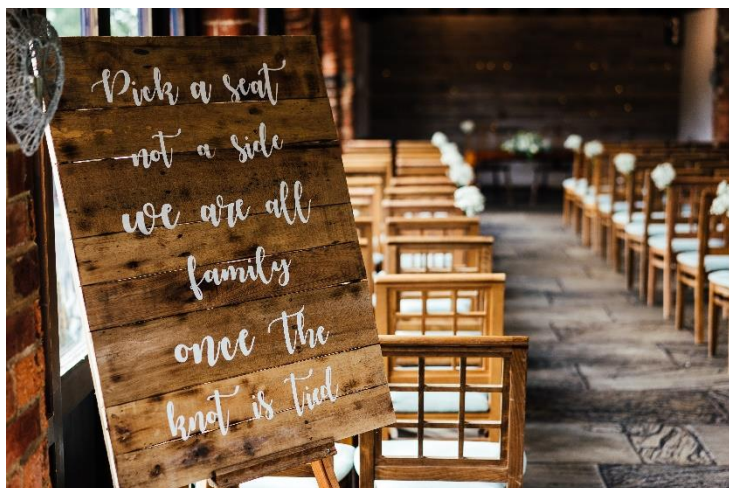 Pick a seat
not a side
we are all
family
once the
knot is tied